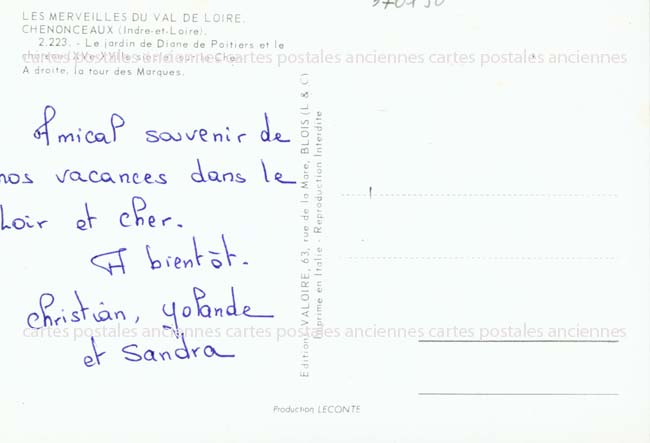 LES MERVEILLES DU VAL DE LOIRE.
CHENONCEAUX (Indre-et-Loire).
2.223. - Le jardin de Diane de Poitiers et le
château (XVe-XVIe siècle) sur le Cher
A droite, la tour des Marques.
Amical souvenir de
nos vacances dans le
Loir et cher.
A bientôt.
christian, yolande
et Sandra
Editions VALOIRE, 63, rue de la Mare, BLOIS (L. & C.)
Imprimé en Italie - Reproduction Interdite
Production LECONTE
cartes postales anciennes cartes postales anciennes cartes postales anciennes cartes postales anciennes
cartes postales anciennes cartes postales anciennes cartes postales anciennes cartes postales anciennes